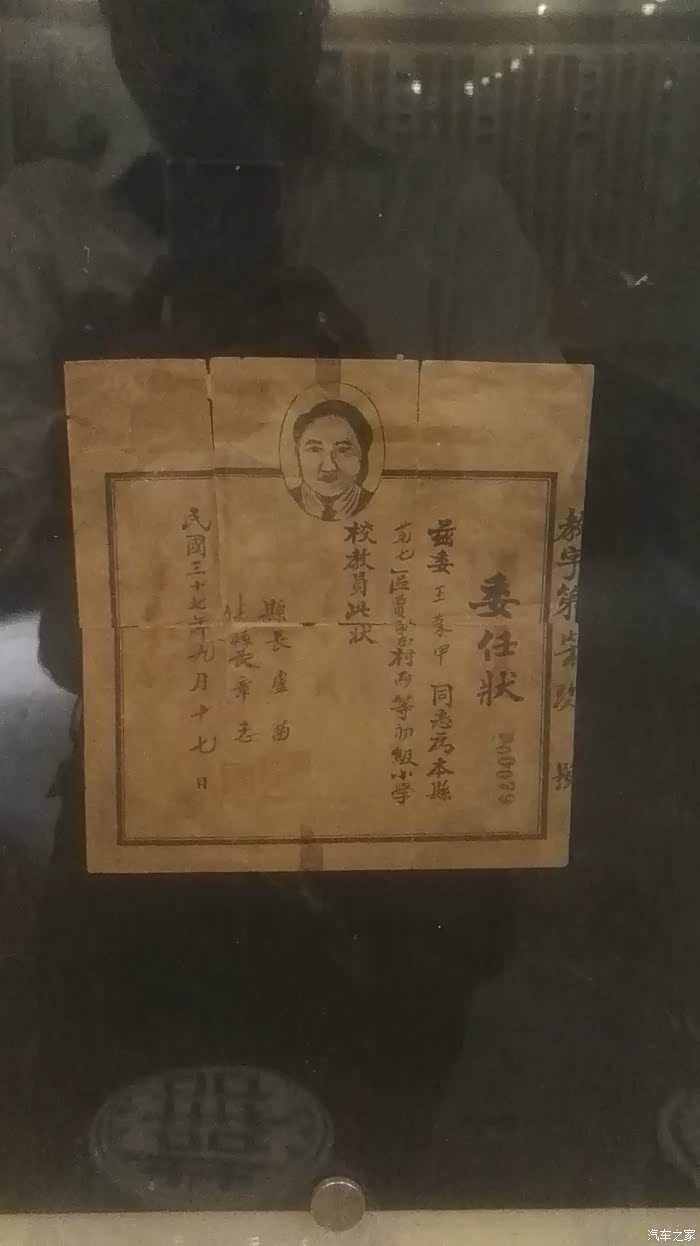 教字第 號
委任狀
000079
茲委王蒙甲同志为本縣
第七區賈 村丙等初級小学
校教員此狀
縣長盧苗
佐縣長章志
民國三十七年九月十七日
汽车之家